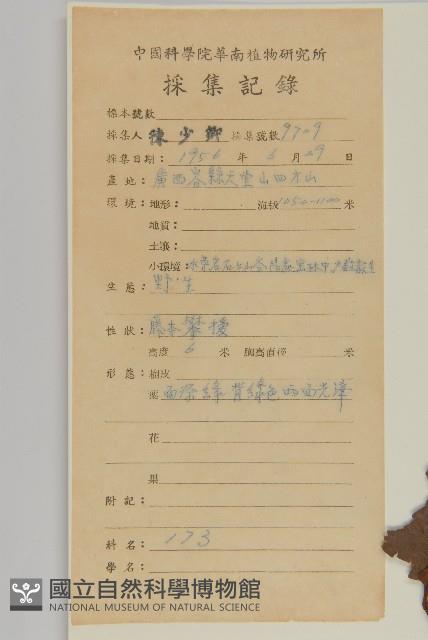 中國科學院華南植物研究所
採集記錄
標本號數
採集人 陳少卿 採集號數 9729
採集日期：1956 年 6 月 29 日
產地：廣西容縣天堂山四方山
環境：地形： 海拔 1050-1100 米
地質：
土壤：
小環境：水泉岩石上山谷陰處密林中
生態：野生
性狀：藤本攀援
高度 6 米 胸高直徑 米
形態：樹皮
葉 面深綠背綠色兩面光澤
花
果
附記：
科名：173
學名：
國立自然科學博物館
NATIONAL MUSEUM OF NATURAL SCIENCE